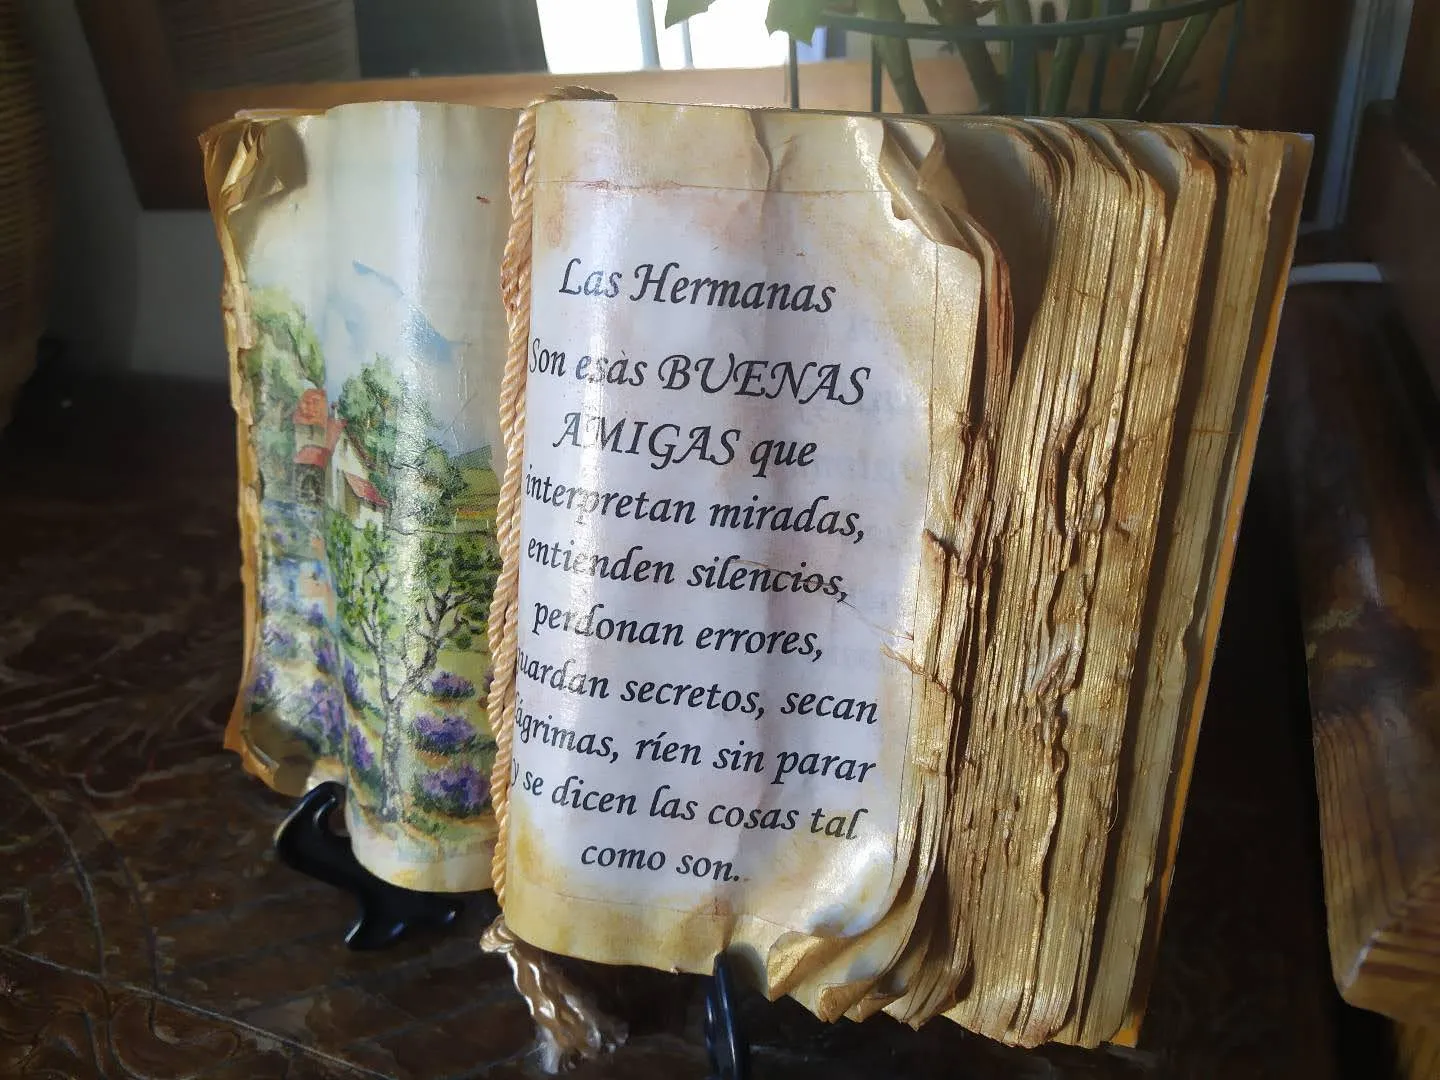 Las Hermanas
Son esàs BUENAS
AMIGAS que
interpretan miradas,
entienden silencios,
perdonan errores,
guardan secretos, secan
lágrimas, ríen sin parar
y se dicen las cosas tal
como son.